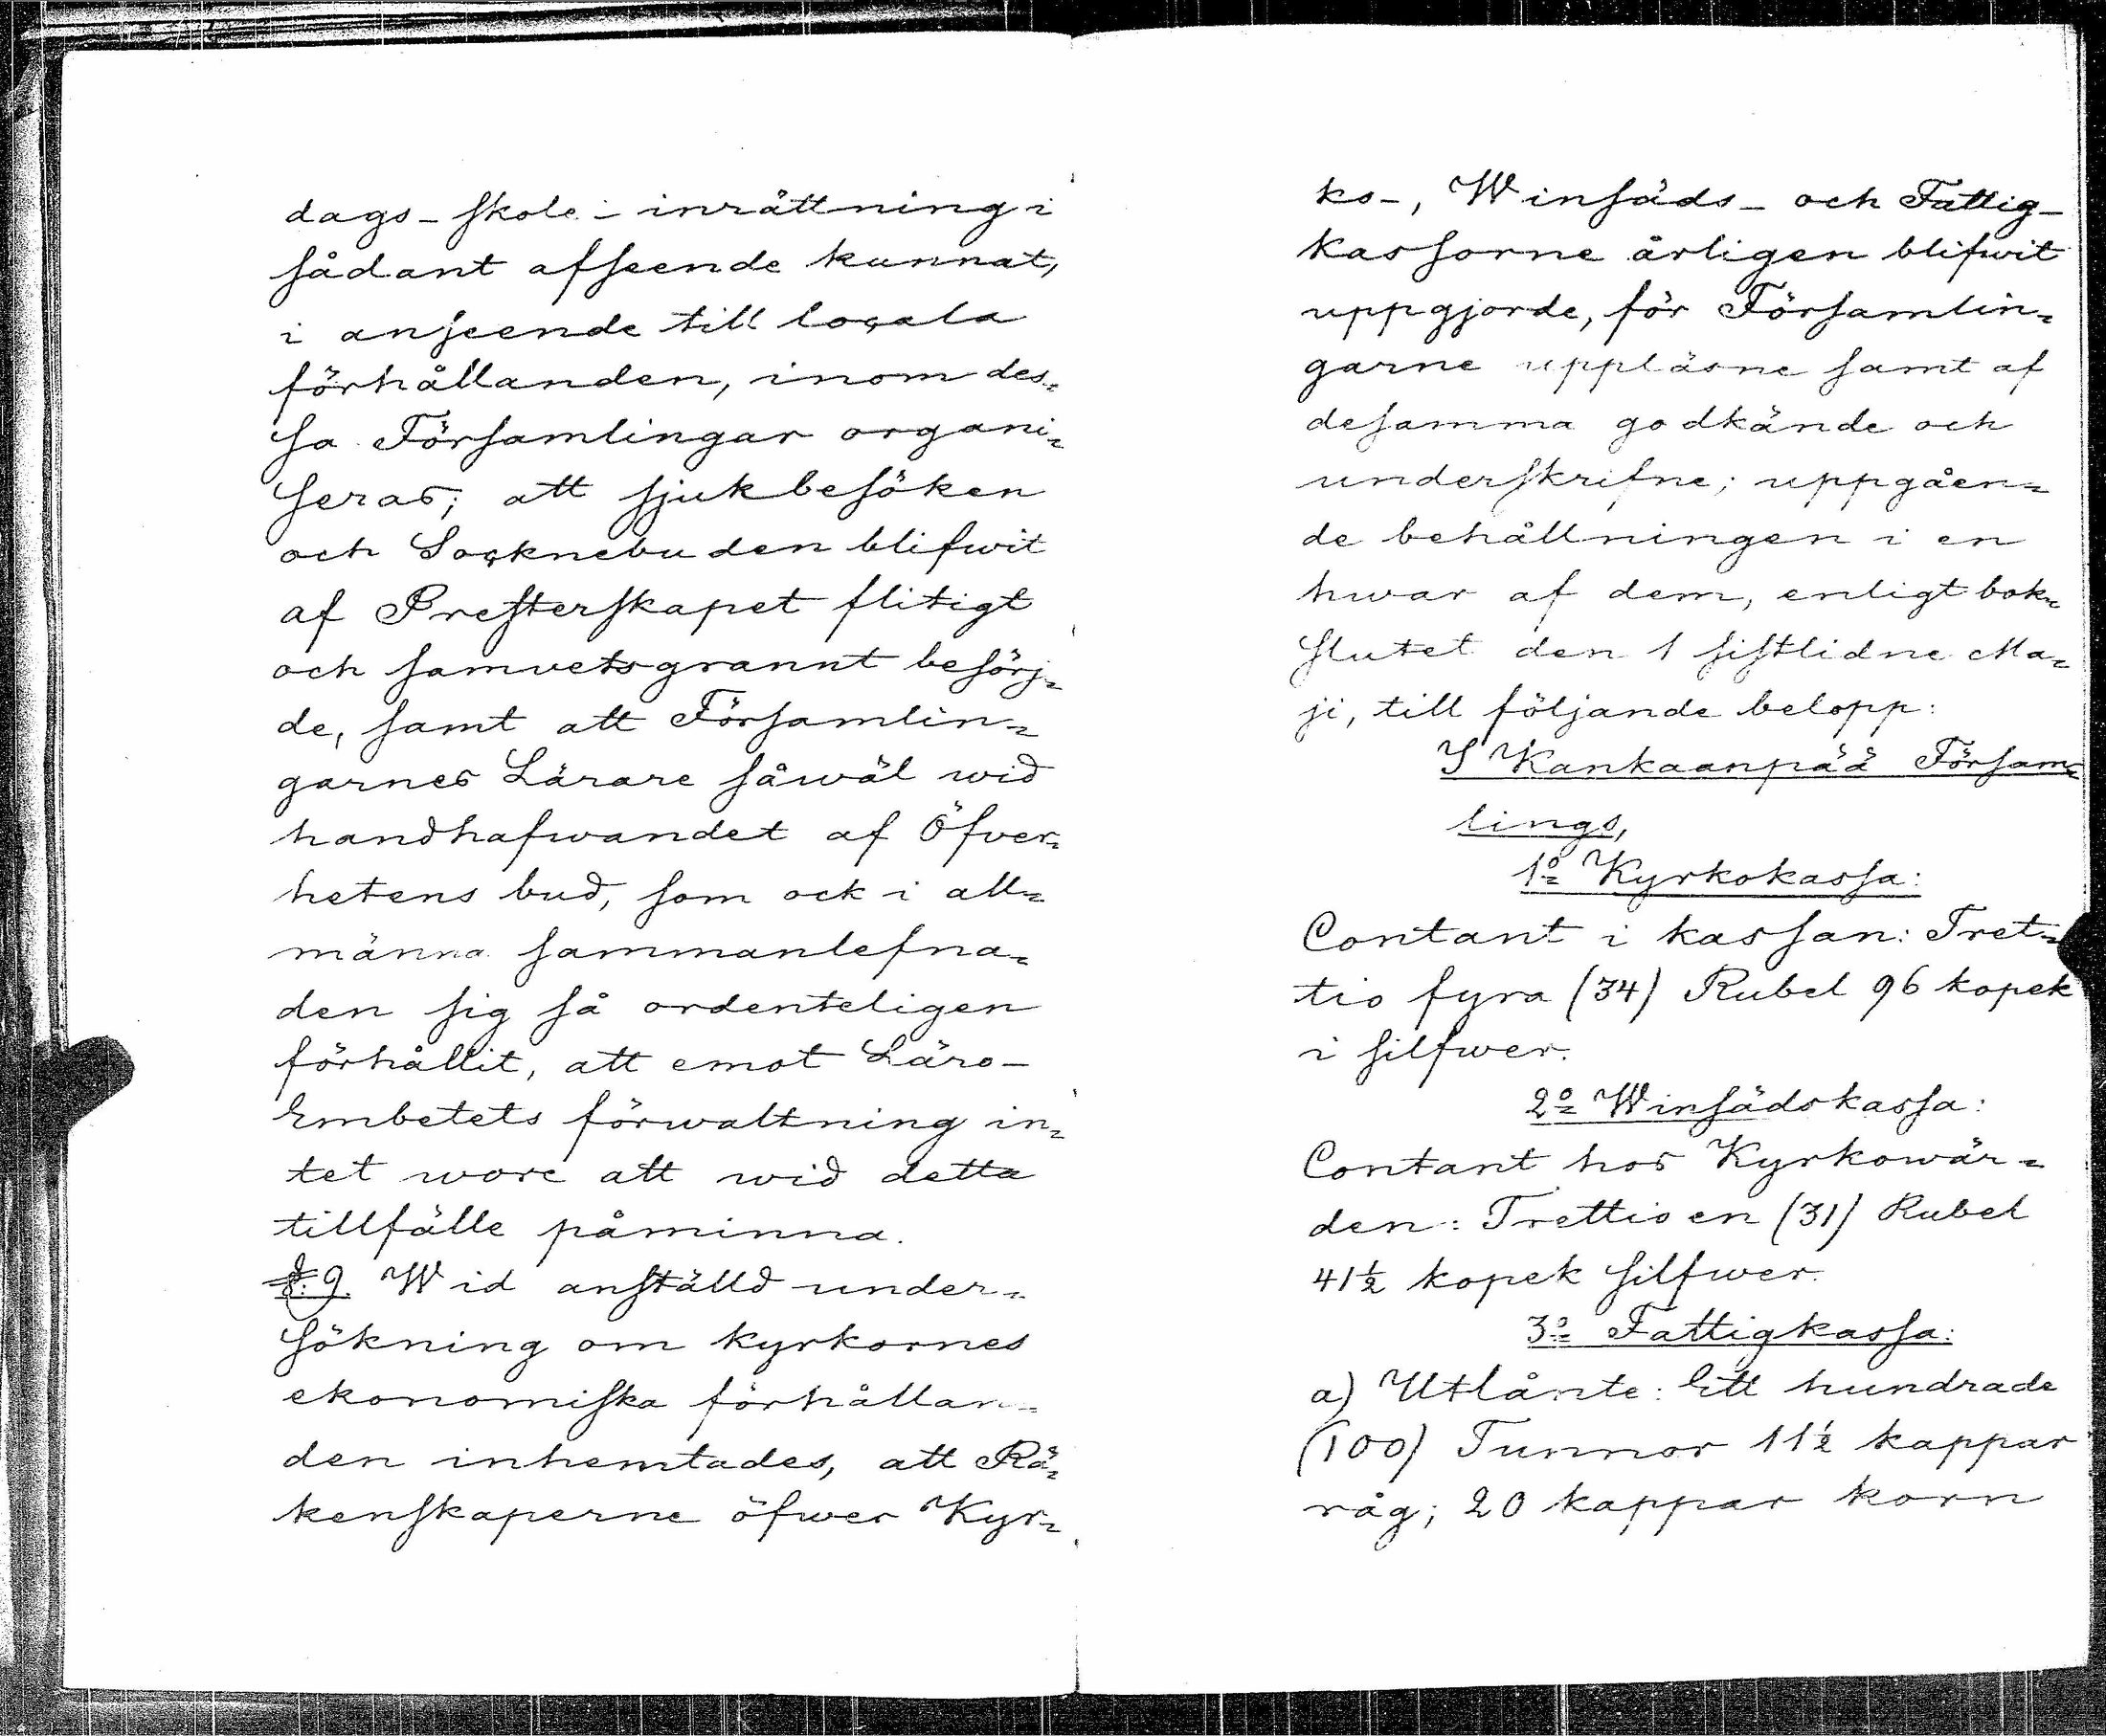 dags-skole-inrättning i
sådant afseende kunnat,
i anseende till locala
förhållanden, inom des=
sa Församlingar organi=
seras; att sjukbesöken
och Socknebuden blifwit
af Presterskapet flitigt
och samvetsgrannt besörj=
de, samt att Församlin=
garnes Lärare såwäl wid
handhafwandet af Öfver=
hetens bud, som ock i all=
männa sammanlefna=
den sig så ordenteligen
förhållit, att emot Läro-
Embetets förwaltning in=
tet wore att wid detta
tillfälle påminna.
§: 9. Wid anställd under=
sökning om kyrkornes
ekonomiska förhållan=
den inhemtades, att Rä=
kenskaperne öfwer Kyr=
ko-, Winsäds- och Fattig-
kassorne årligen blifwit
uppgjorde, för Församlin=
garne uppläsne samt af
desamma godkände och
underskrifne; uppgåen=
de behållningen i en
hwar af dem, enligt bok=
slutet den 1 sistlidne Ma=
ji, till följande belopp:
I Kankaanpää Försam=
lings,
1o= Kyrkokassa:
Contant i kassan: Tret=
tio fyra (34) Rubel 96 kopek
i silfwer.
2o= Winsädskassa:
Contant hos Kyrkowär=
den: Trettio en (31) Rubel
41½ kopek silfwer.
3o= Fattigkassa:
a) Utlånte: Ett hundrade
(100) Tunnor 11½ kappar
råg; 20 kappar korn